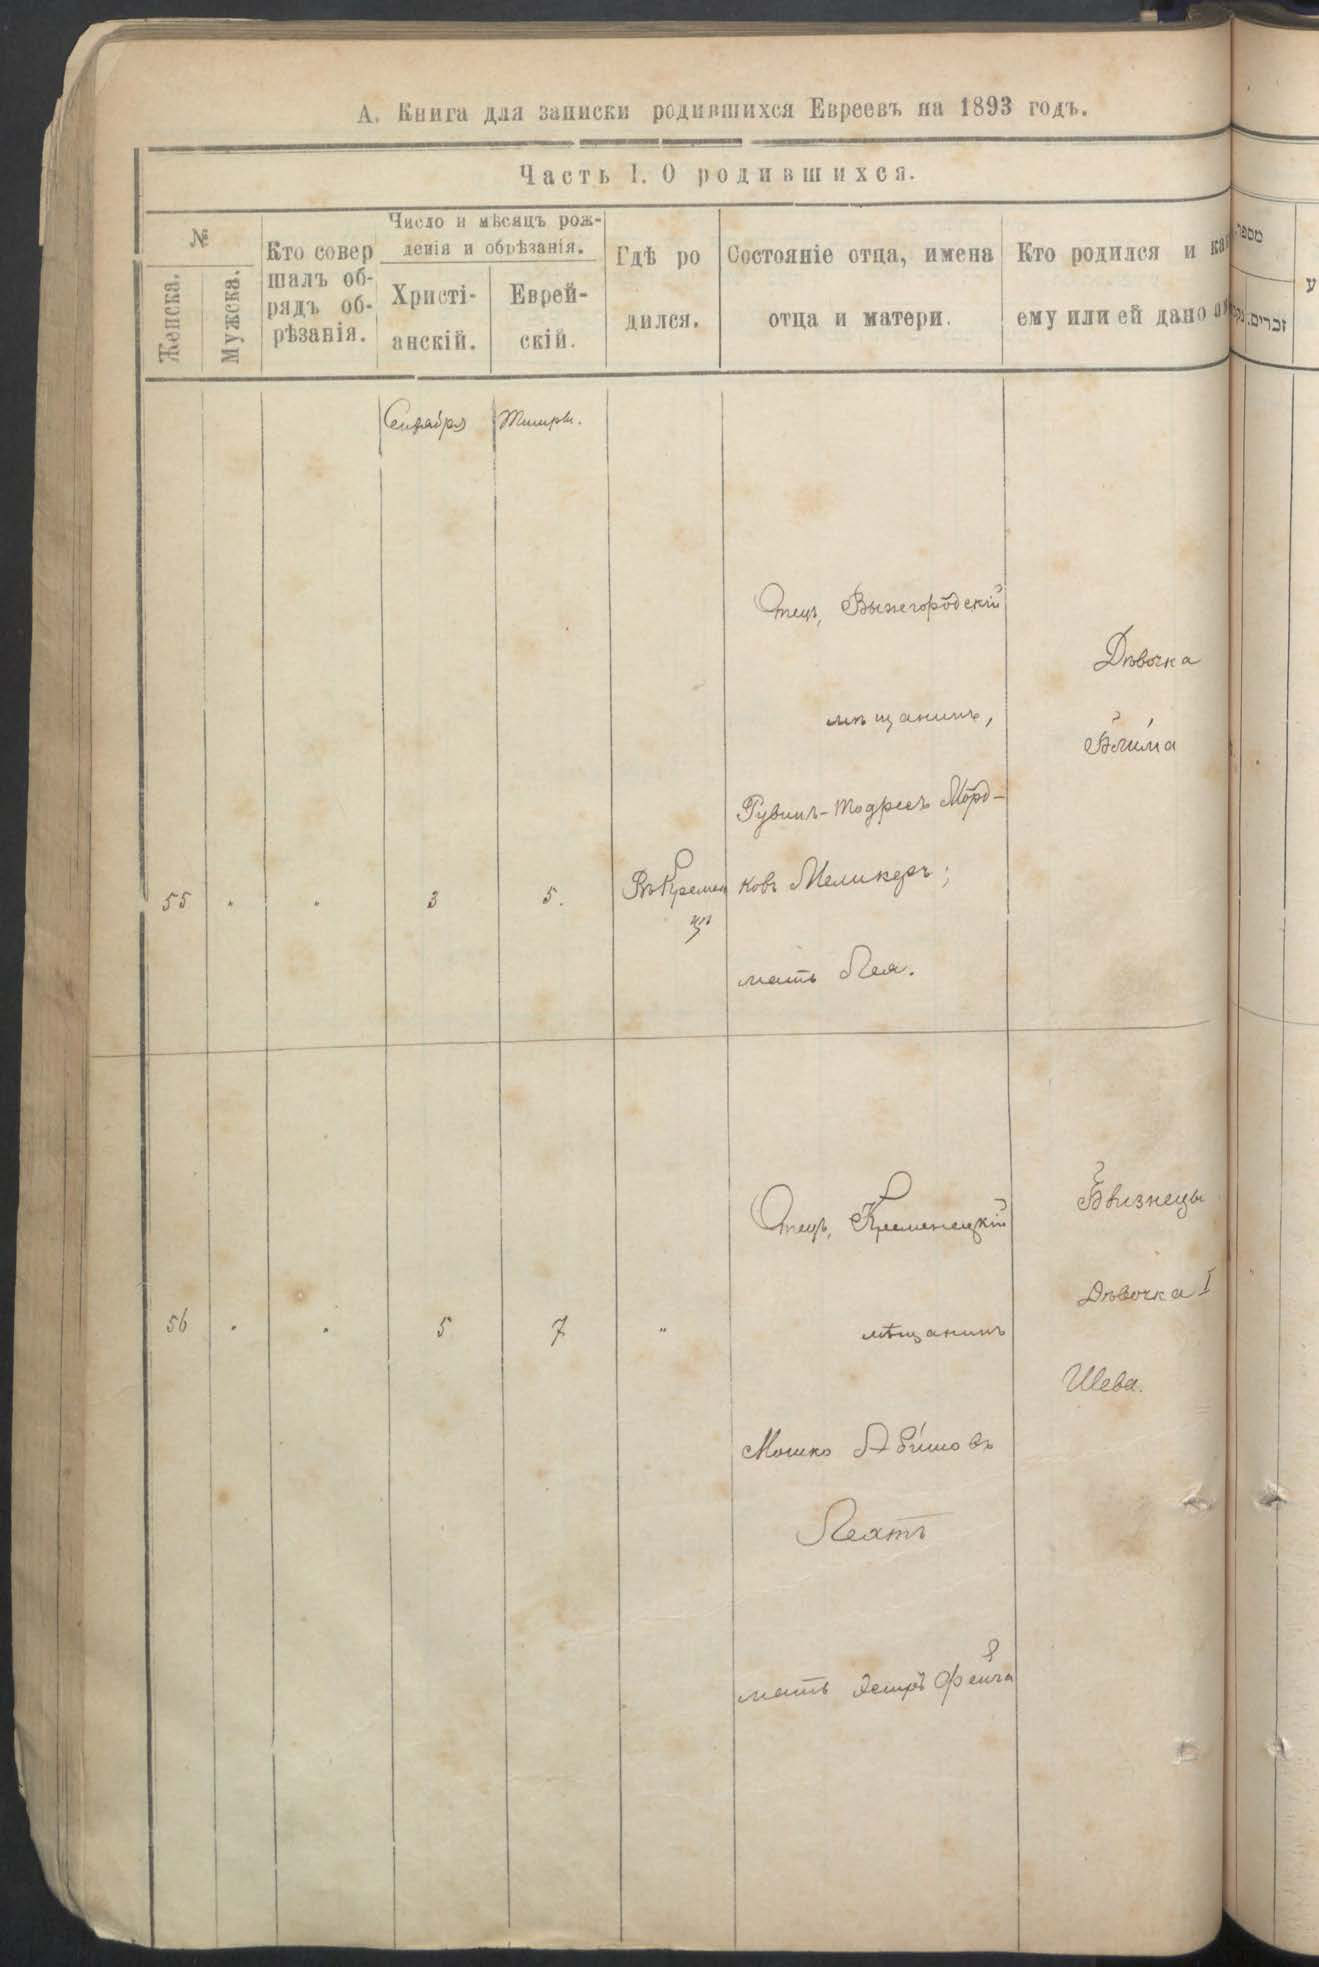 А. Книга для записки родившихся Евреевъ на 1893 годъ.
Часть I. О родившихся.
№
Женска.
Мужска.
Кто совер
шалъ об-
рядъ об-
рѣзанія.
Число и мѣсяцъ рож-
денія и обрѣзанія.
Христі-
анскій.
Еврей-
скій.
Гдѣ ро
дился.
Состояніе отца, имена
отца и матери.
Кто родился и
ему или ей дано
מספר.
זכרים.
Сентября
Тишри.
55
3
5.
Въ Кремен
цѣ
Отецъ, Вышегородскій
мѣщанинъ,
Рувинъ-Тодресъ Морд-
ковъ Меликеръ;
мать Лея.
Дѣвочка
56
5
7
"
Отецъ, Кременецкій
мѣщанинъ
Мошко
мать Фейга
Близнецы
Дѣвочка I
Шева.